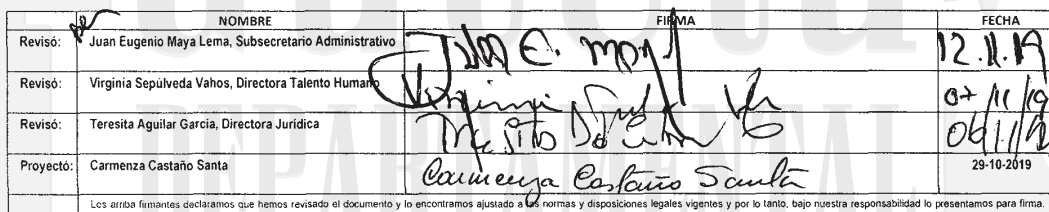 NOMBRE FIRMA FECHA
Revisó: Juan Eugenio Maya Lema, Subsecretario Administrativo Juan E. Maya 12.11.19
Revisó: Virginia Sepúlveda Vahos, Directora Talento Humano Virginia 07/11/19
Revisó: Teresita Aguilar García, Directora Jurídica Teresita
Proyectó: Carmenza Castaño Santa Carmenza Castaño Santa 29-10-2019
Los arriba firmantes declaramos que hemos revisado el documento y lo encontramos ajustado a las normas y disposiciones legales vigentes y por lo tanto, bajo nuestra responsabilidad lo presentamos para firma.